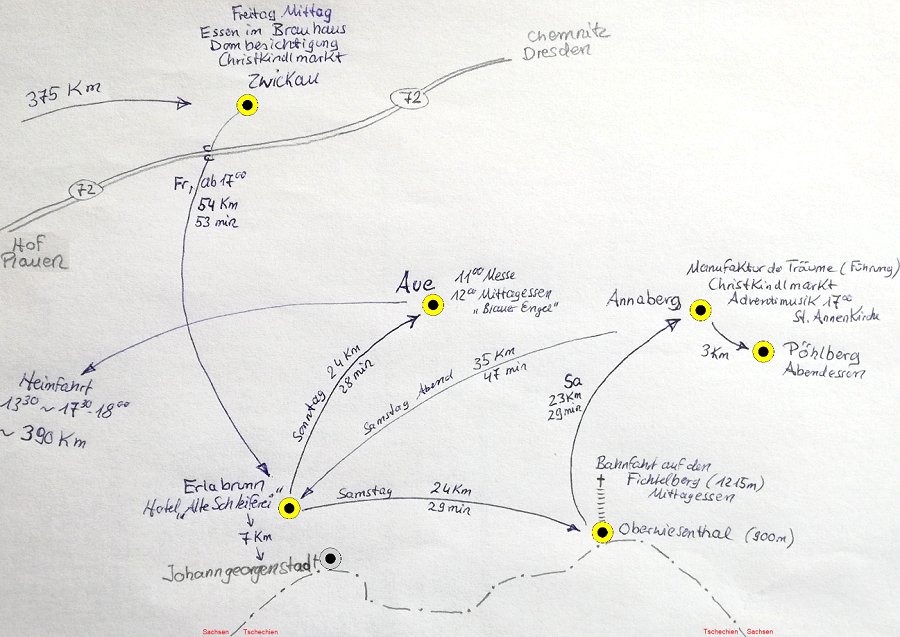 Freitag Mittag
Essen im Brauhaus
Dombesichtigung
Christkindlmarkt
Zwickau
Chemnitz
Dresden
375 Km
72
72
Fr, ab 17⁰⁰
54 Km
53 min
Hof
Plauen
Aue
11⁰⁰ Messe
12⁰⁰ Mittagessen
„Blauer Engel"
Manufaktur de Träume (Führung)
Christkindlmarkt
Adventmusik 17⁰⁰
St. Annenkirche
Annaberg
3Km
Pöhlberg
Abendessen
Heimfahrt
13³⁰ ~ 17³⁰-18⁰⁰
~ 390 Km
Sonntag 24 Km
28 min
Samstag Abend 35 Km
47 min
Sa
23Km
29 min
Bahnfahrt auf den
Fichtelberg (1215m)
Mittagessen
Erlabrunn
Hotel „Alte Schleiferei"
Samstag 24Km
29 min
Oberwiesenthal (900m)
7 Km
Johanngeorgenstadt
Sachsen Tschechien
Tschechien Sachsen